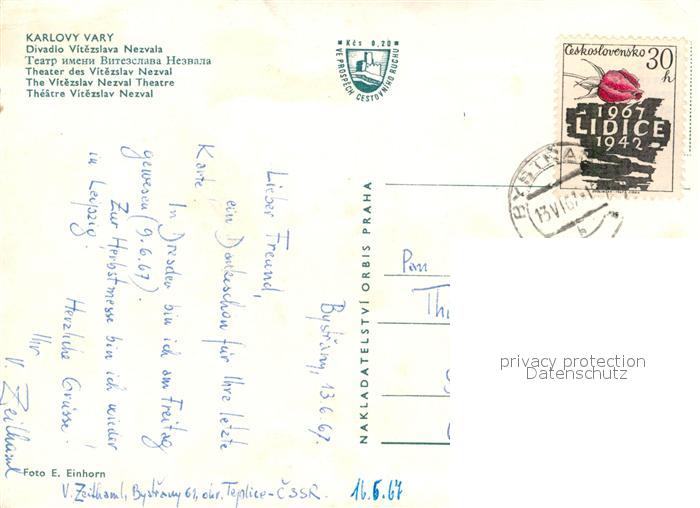 KARLOVY VARY
Divadlo Vítězslava Nezvala
Театр имени Витезслава Незвала
Theater des Vítězslav Nezval
The Vítězslav Nezval Theatre
Théâtre Vítězslav Nezval
Kčs 0,20
VE PROSPĚCH CESTOVNÍHO RUCHU
Československo 30 h
1967
LIDICE
1942
13.VI.67
Bystřany, 13.6.67.
Lieber Freund,
ein Dankeschön für Ihre letzte
Karte.
In Dresden bin ich am Freitag
gewesen (9.6.67).
Zur Herbstmesse bin ich wieder
in Leipzig.
Herzliche Grüsse!
Ihr
V. Zeithaml
NAKLADATELSTVÍ ORBIS PRAHA
Pan
Th
privacy protection
Datenschutz
Foto E. Einhorn
V. Zeithaml, Bystřany 61, okr. Teplice-ČSSR.
16.6.67